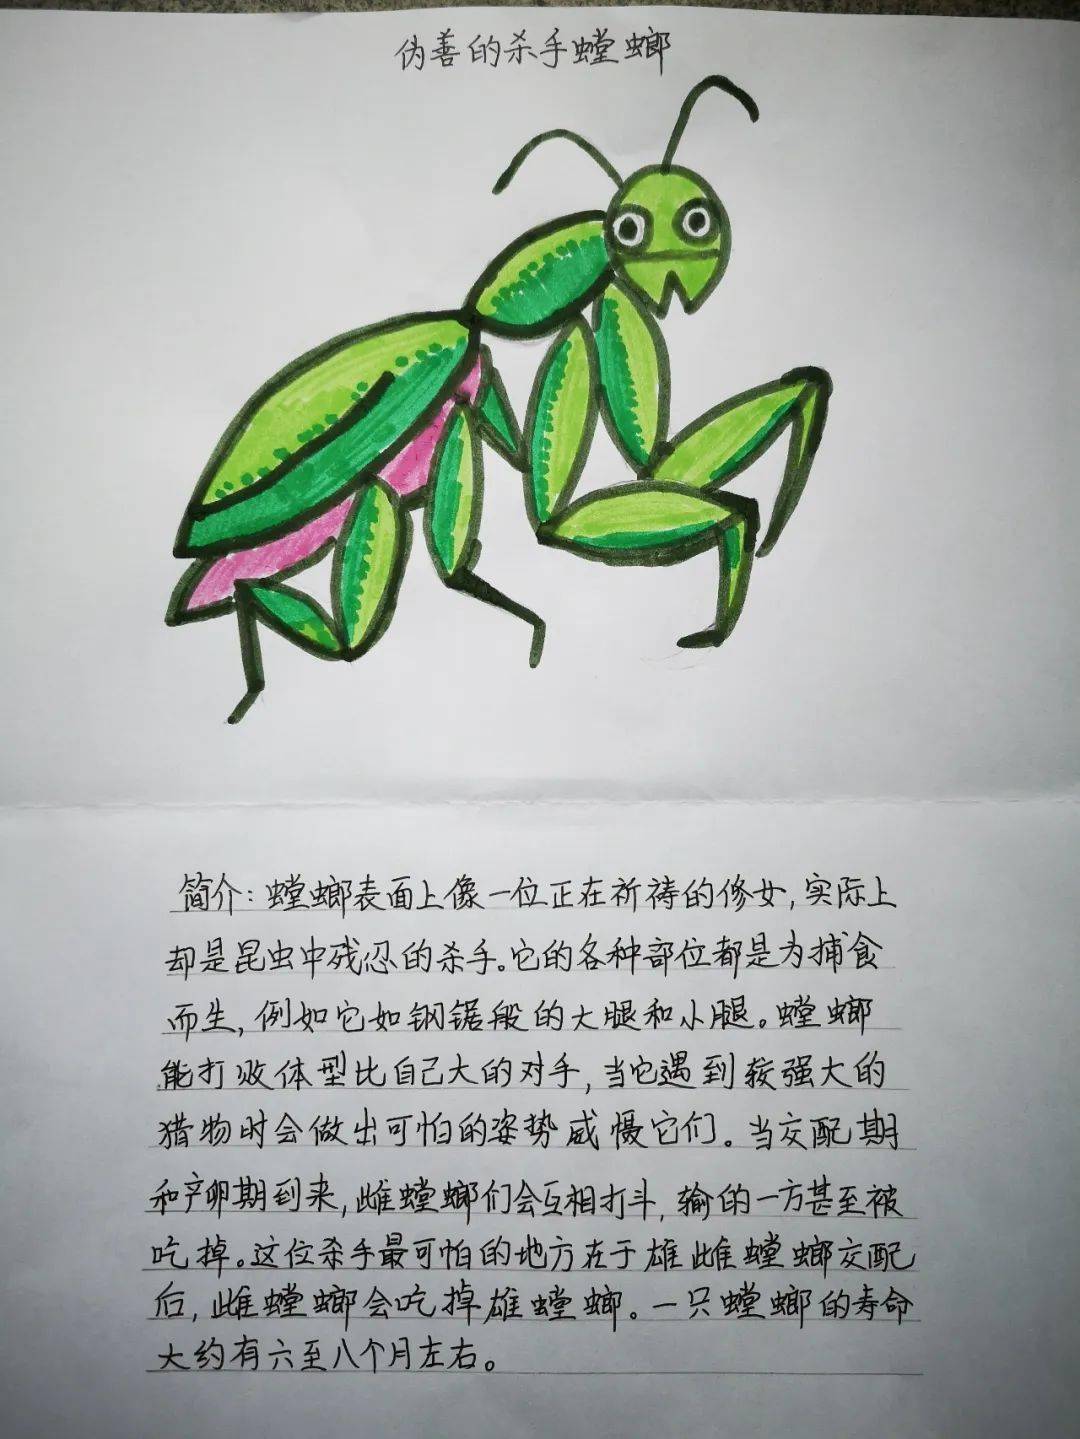 伪善的杀手螳螂
简介:螳螂表面上像一位正在祈祷的修女,实际上
却是昆虫中残忍的杀手。它的各种部位都是为捕食
而生,例如它如钢锯般的大腿和小腿。螳螂
能打败体型比自己大的对手,当它遇到较强大的
猎物时会做出可怕的姿势威慑它们。当交配期
和产卵期到来,雌螳螂们会互相打斗,输的一方甚至被
吃掉。这位杀手最可怕的地方在于雄雌螳螂交配
后,雌螳螂会吃掉雄螳螂。一只螳螂的寿命
大约有六至八个月左右。